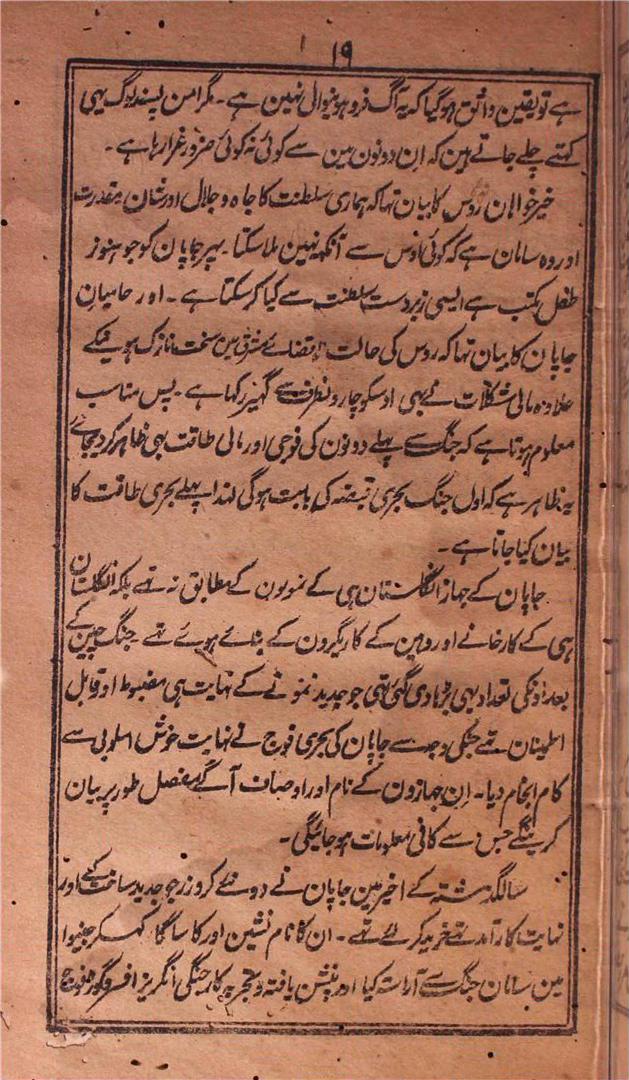 ۱۹
ہے تو یقین واثق ہوگیا کہ یہ آگ فرو ہونیوالی نہین ہے۔ مگر امن پسند لوگ یہی
کہتے چلے جاتے ہین کہ اِن دونون مین سے کوئی نہ کوئی ضرور غرا رہا ہے۔
خیرخواہان روس کا بیان تہا کہ ہماری سلطنت کا جاہ و جلال اور شان مقدرت
اور وہ سامان ہے کہ کوئی اوس سے آنکہہ نہین ملا سکتا۔ پہر جاپان کو جو ہنوز
طفل مکتب ہے ایسی زبردست سلطنت سے کیا کر سکتا ہے۔ اور حامیان
جاپان کا بیان تہا کہ روس کی حالت اقتضائے مشرق مین سخت نازک ہونیکے
علاوہ مالی مشکلات نے بہی اوسکو چارونطرف سے گہیر رکہا ہے۔ پس مناسب
معلوم ہوتا ہے کہ جنگ سے پہلے دونون کی فوجی اور مالی طاقت بہی ظاہر کر دیجائے
یہ ظاہر ہے کہ اول جنگ بحری قبضہ کی بابت ہوگی لہذا پہلے بحری طاقت کا
بیان کیا جاتا ہے۔
جاپان کے جہاز انگلستان ہی کے نمونون کے مطابق نہ تہے بلکہ انگلستان
ہی کے کارخانے اور وہین کے کاریگرون کے بنائے ہوئے تہے۔ جنگ چین کے
بعد اونکی تعداد بہی بڑہا دی گئی تہی جو جدید نمونے کے نہایت ہی مضبوط اور قابل
اطمینان تہے جنکی وجہ سے جاپان کی بحری فوج نے نہایت خوش اسلوبی سے
کام انجام دیا۔ اِن جہازون کے نام اور اوصاف آگے مفصل طور پر بیان
کرینگے جس سے کافی معلومات ہو جائیگی۔
سالگذشتہ کے اخیر مین جاپان نے دو نئے کروزر جو جدید ساخت کے اور
نہایت کارآمد تہے خرید کر لئے تہے۔ ان کا نام نشین اور کاساگا رکہہ کر جنیوا
مین سامان جنگ سے آراستہ کیا اور پنشن یافتہ و تجربہ کار جنگی انگریز افسر